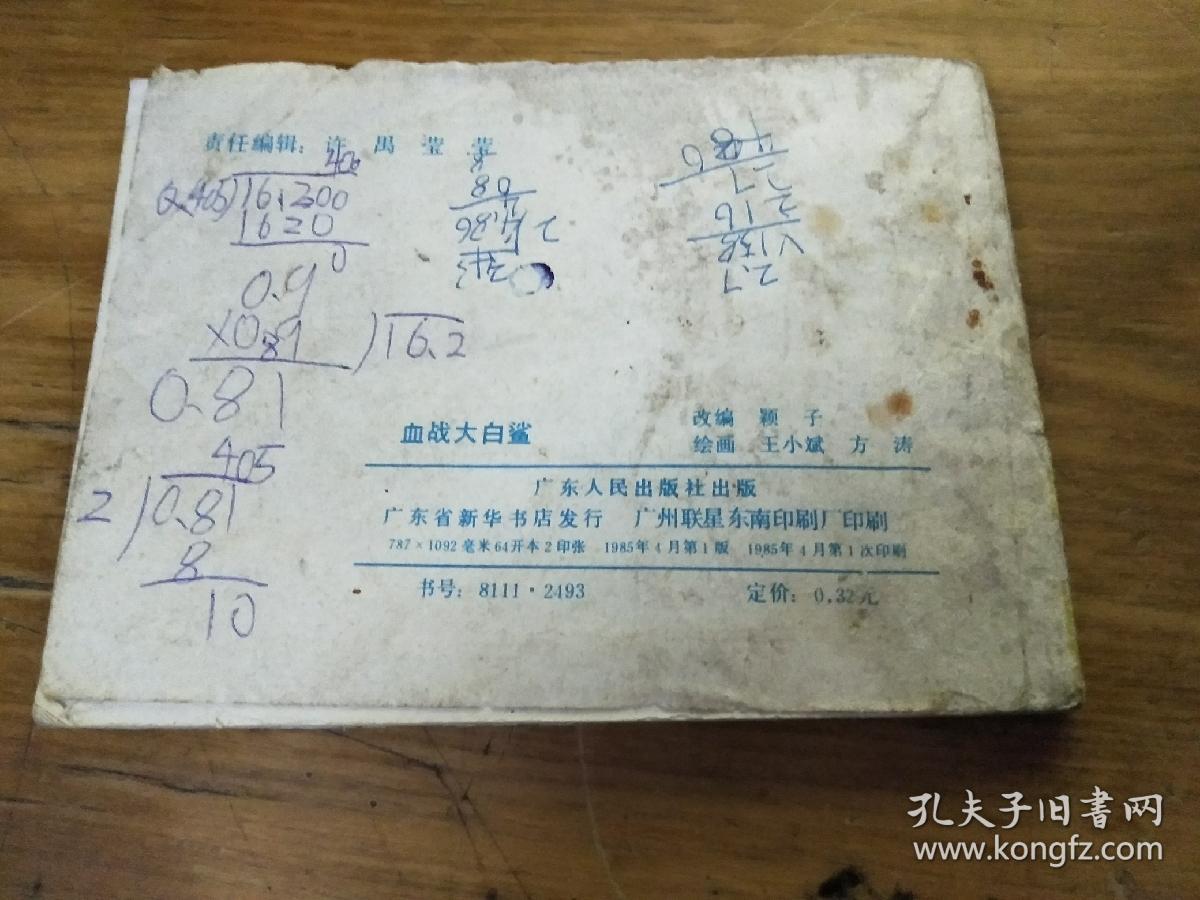 责任编辑：许 禺 滢 莹
400
0.405)16.200
1620
0
0.9
×0.89
0.81
)16.2
405
2)0.81
8
10
2.7
216
27
血战大白鲨
改编 颖 子
绘画 王小斌 方 涛
广东人民出版社出版
广东省新华书店发行 广州联星东南印刷厂印刷
787×1092毫米64开本2印张 1985年4月第1版 1985年4月第1次印刷
书号：8111·2493 定价：0.32元
孔夫子旧书网
www.kongfz.com